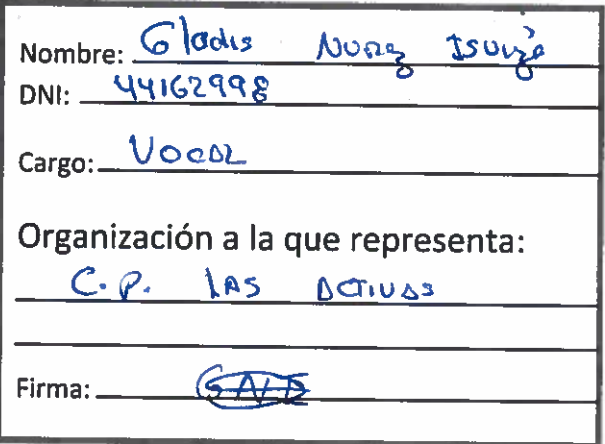 Nombre: Gladis Nuñez Isuiza
DNI: 44162998
Cargo: Vocal
Organización a la que representa:
C.P. LAS ACTIVAS
Firma: